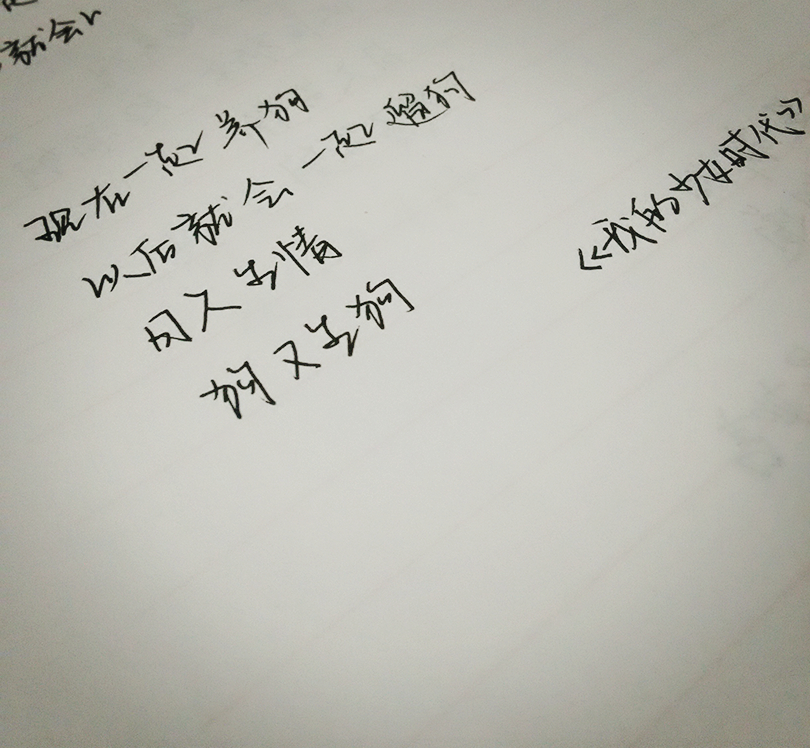 就会
现在一起养狗
以后就会一起遛狗
日久生情
狗又生狗
《我的少女时代》